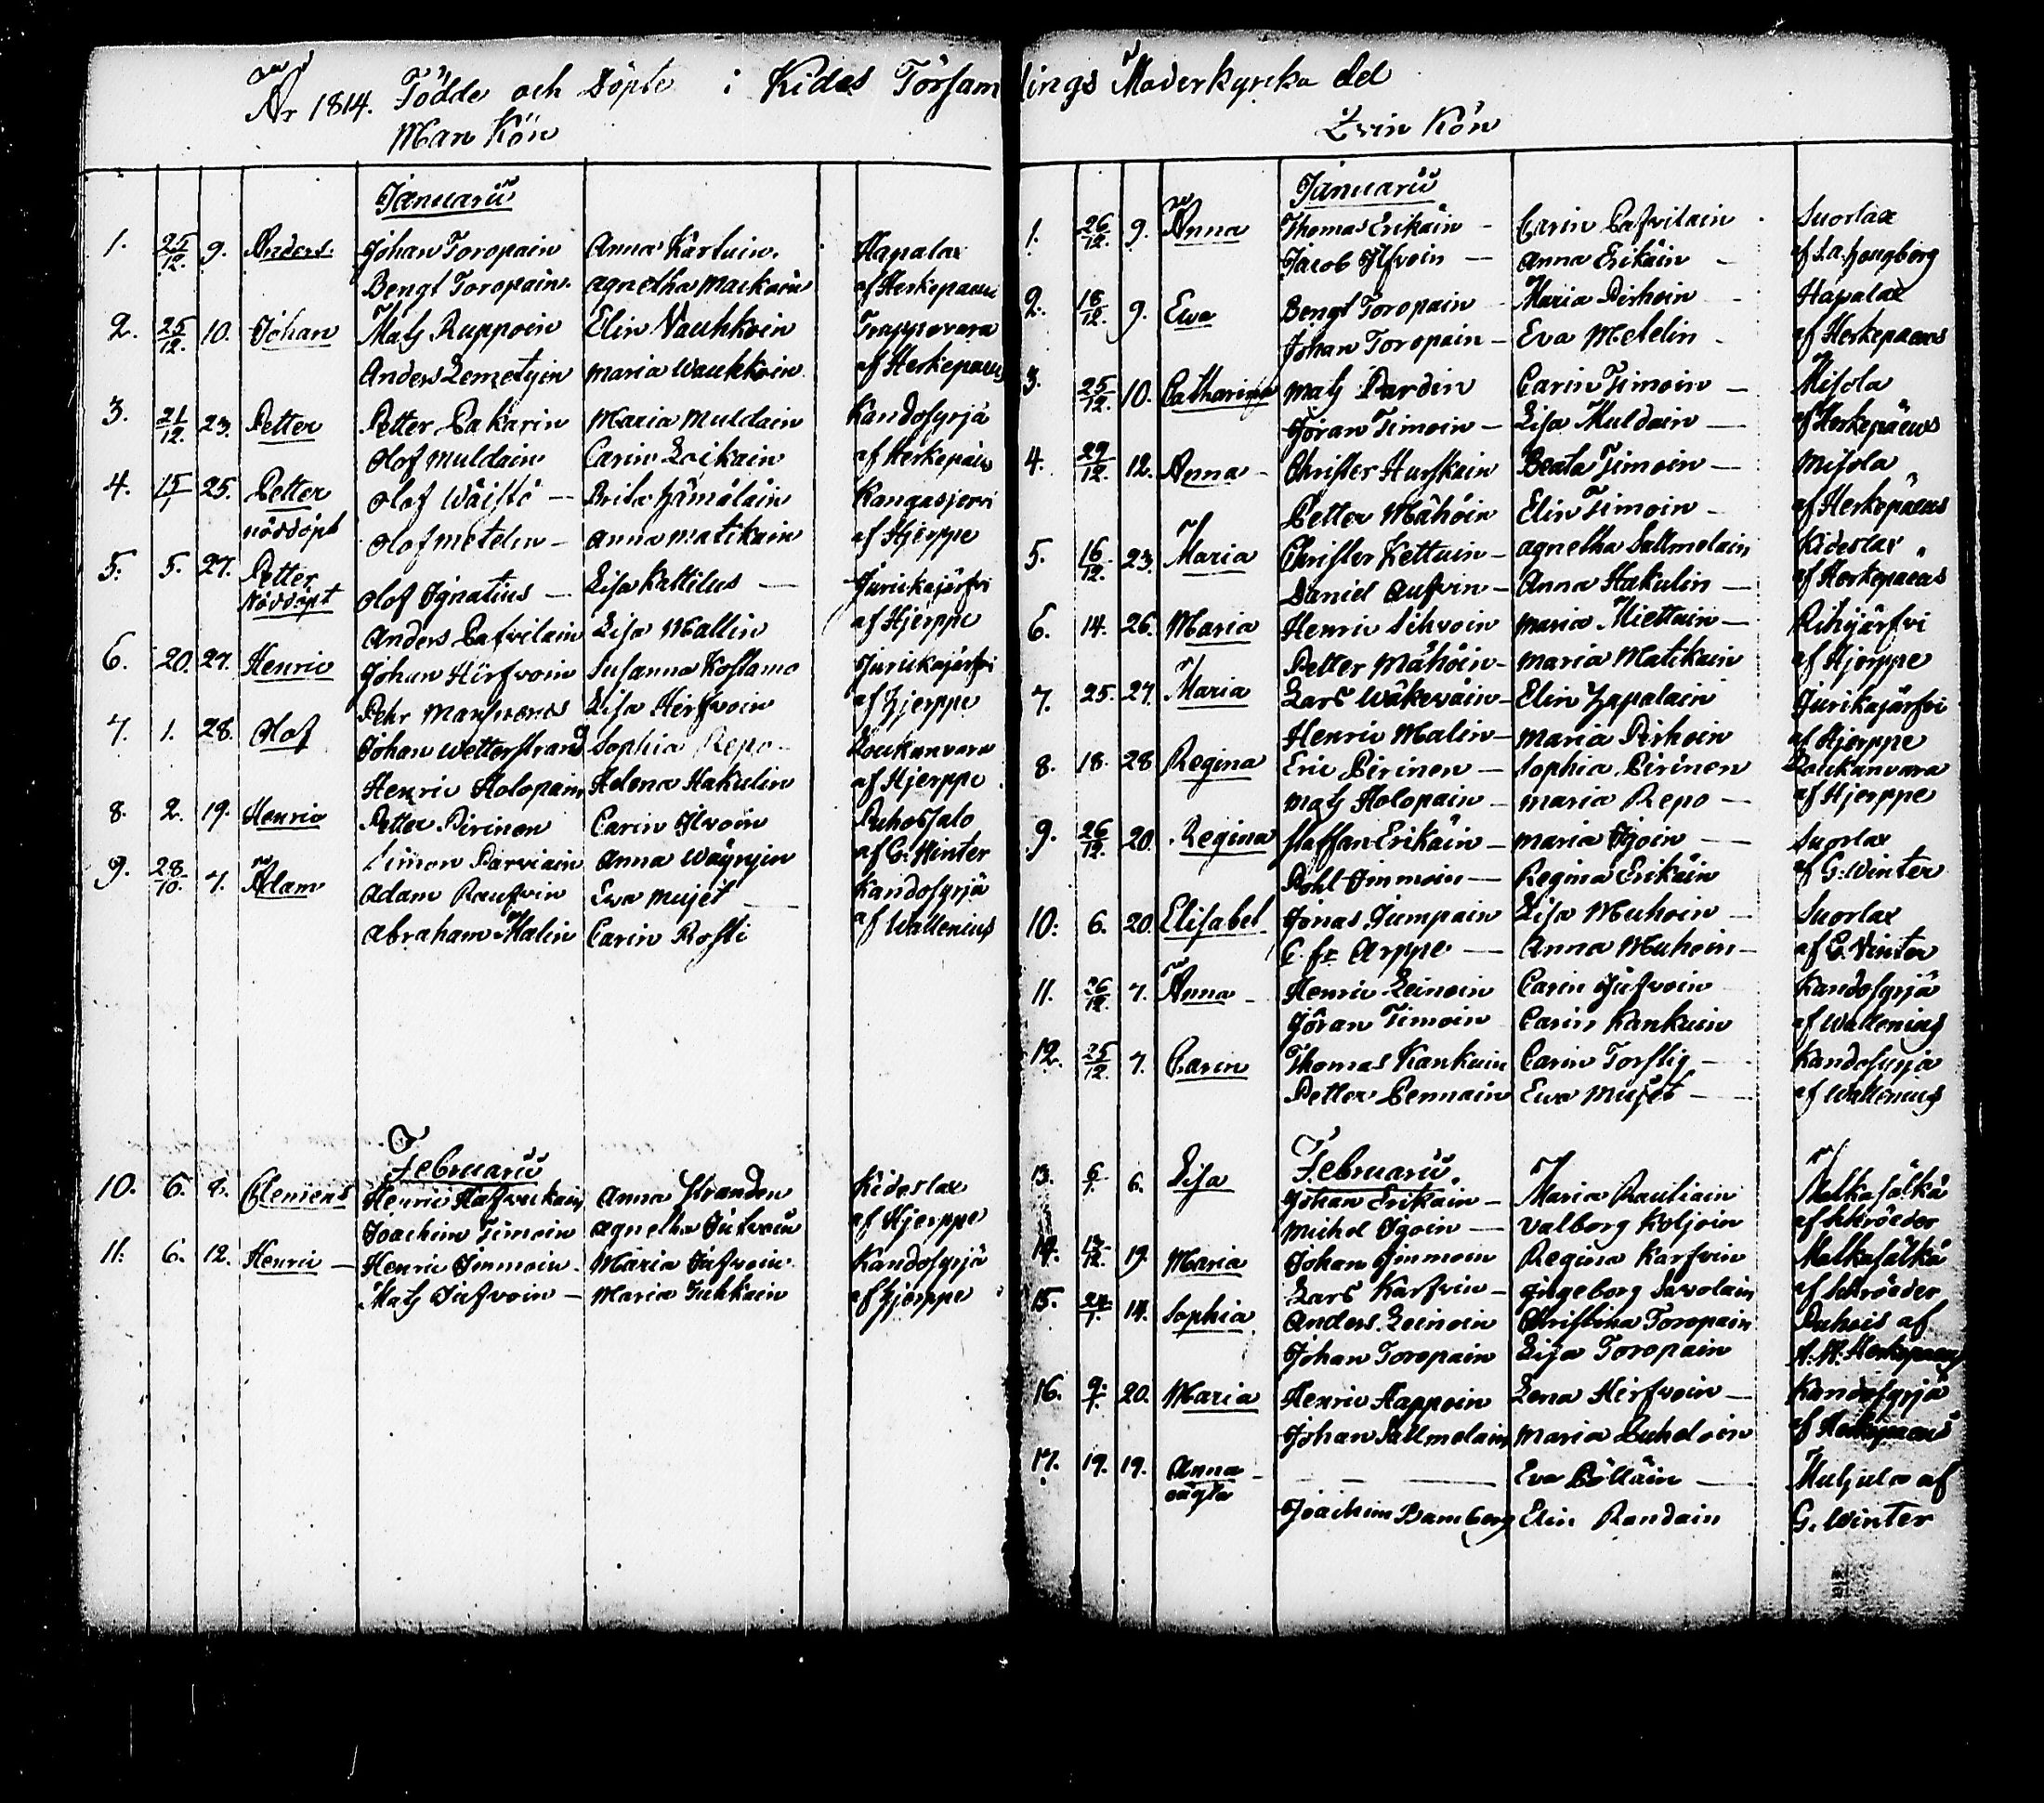 År 1814. Födde och Döpte i Kides Församlings Moderkyrko del
Man Kön
Januarii
1. 25/12. 9. Anders. Johan Toropain Anna Kärluin. Hapalax
Bengt Toropain. Agnetha Maikain af Herkepaeus
2. 25/12. 10. Johan Matz Ruppoin Elin Vauhkoin Trappovara
Anders Lemetyin Maria Wauhkoin af Herkepaeus
3. 21/12. 23. Petter Petter Pakarin Maria Muldain Kandosyrjä
Olof Muldain Carin Loikain af Herkepäus
4. 15/1 25. Petter Olof Wäistö — Brita Hämäläin Kangasjervi
nöddöpt Olof Metelin — Anna Matikain af Hjerppe
5. 5. 27. Petter Olof Ignatius — Lisa Kattilus — Juurikajärfvi
Nöddöpt Anders Pafvilain Lisa Mallin af Hjerppe
6. 20. 27. Henric Johan Hirfvoin Susanna Kostamo Juurikajärfvi
Pehr Lisa Hirfvoin af Hjerppe
7. 1. 28. Olof Johan Wetterstrand Sophia Repo — Loukanvara
Henric Holopain Helena Hakulin af Hjerppe
8. 2. 19. Henric Petter Pirinen Carin Ilvoin Puhossalo
Simon Parviain Anna Wäyryin af G. Winter
9. 28/10. 7. Adam Adam Raufvin Ewa Mujet — Kandosyrjä
Abraham Malin Carin Rosti af Wallenius
Februarii
10. 6. 8. Clemens Henric Anna Stranden Kideslax
Joachim Timoin Agnetha Jufvoin af Hjerppe
11. 6. 12. Henric — Henric Immoin. Maria Jufvoin. Kandosyrjä
Matz Jufvoin — Maria Tukkain af Hjerppe
Qvin Kön
Januarii
1. 26/12. 9. Anna Thomas Erikäin — Carin Pafvilain Suorlax
Jacob Ilfvoin — Anna Erikäin — af
2. 18/12. 9. Ewa Bengt Toropain — Maria Pirhoin — Hapalax
Johan Toropain — Eva Metelin — af Herkepaeus
3. 25/12. 10. Catharina Matz Pardin Carin Timoin — Misola
Jöran Timoin — Lisa Muldain — af Herkepäeus
4. 29/12. 12. Anna — Christer Hurskain Beata Timoin — Misola
Petter Mähöin Elin Timoin — af Herkepäeus
5. 16/12. 23. Maria Christer Kettuin — Agnetha Sallmelain Kideslax
Daniel Aufvin — Anna Hakulin — af Herkepaeus
6. 14. 26. Maria Henric Sihvoin Maria Miettuin — Rihijärfvi
Petter Mähöin — Maria Matikain af Hjerppe
7. 25. 27. Maria Lars Wäkeväin — Elin Hapalain Jurikajärfvi
Henric Malin — Maria Pirhoin af Hjerppe
8. 18. 28 Regina Eric Pirinen — Sophia Pirinen Loukanvara
Matz Holopain — Maria Repo — af Hjerppe
9. 26/12. 20 Regina Staffan Erikäin — Maria Ijoin — Suorlax
Pohl Immoin — Regina Erikäin af G. Winter
10: 6. 20. Elisabet. Jonas Jumpain Lisa Muhoin — Suorlax
C. fr Arppe — Anna Muhoin — af G. Vinter
11. 26/12. 7. Anna — Henric Leinoin Carin Jufvoin Kandosyrjä
Jöran Timoin Carin Kankuin af Wallenius
12. 25/12. 7. Carin Thomas Kankuin Carin Torstig — Kandosyrjä
Petter Pennain Ewa Mujet — af Wallenius
Februarii.
13. 6/1. 6. Lisa Johan Erikäin — Maria Rautiain Matkasälkä
Michel Ijoin — Valborg Koljoin af Schröeder
14. 12/12. 19. Maria Johan Immoin Regina Karfvin Matkasälkä
Lars Karfvin — Ingeborg Savolain af Schröeder
15. 24/1. 14. Sophia Anders Leinoin Christina Toropain Puhois af
Johan Toropain Lisa Toropain A. H. Herkepaeus
16. 9/1. 20. Maria Henric Happoin Lena Hirfvoin — Kandosyrjä
Johan Sallmelain Maria Puheloin af Herkepaeus
17. 19. 19. Anna — — — — Eva Pölläin — Muljula af
oägta Joachim Bamberg Elin Rondain G. Winter